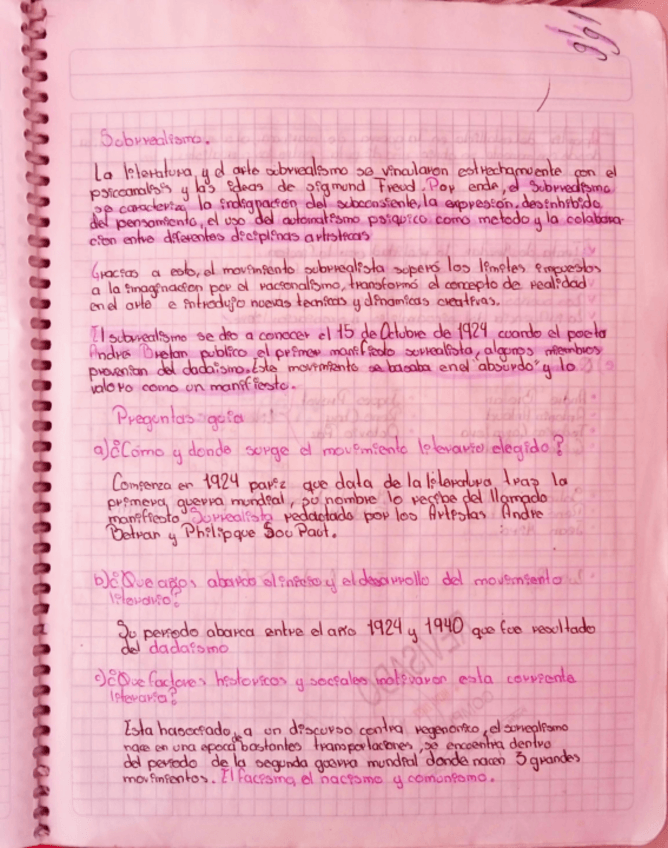 Subrrealismo.
La literatura, y el arte subrrealismo se vincularon estrechamente con el
psicoanalisis y las ideas de sigmund Freud. Por ende, el subrrealismo
se caracteriza la indignación del subconsiente, la expresión, desinhibida
del pensamiento, el uso del automatismo psiquico como metodo y la colabora-
cion entre diferentes disciplinas artisticas
Gracias a esto, el movimiento subrrealista superó los limites impuestos
a la imaginacion por el racionalismo, transformó el concepto de realidad
en el arte e introdujo nuevas tecnicas y dinamicas creativas.
El subrrealismo se dio a conocer el 15 de Octubre de 1924 cuando el poeta
Andre Bretan publico el primer manifiesto surrealista, algunos miembros
provenian del dadaismo. Este movimiento se basaba en el "absurdo" y lo
valoro como un manifiesto.
Preguntas guia
a) ¿Cómo y donde surge el movimiento literario elegido?
Comienza en 1924 pariz que data de la literatura tras la
primera guerra mundial, su nombre lo recibe del llamado
manifiesto Surrealista redactado por los Artistas Andre
Betran y Philipque Sou Paut.
b) ¿Que años abarco el inicio y el desarrollo del movimiento
literario?
Su periodo abarca entre el año 1924 y 1940 que fue resultado
del dadaismo
c) ¿Que factores historicos y sociales motivaron esta corriente
literaria?
Esta hasociado a un discurso contra el surrealismo
nace en una epoca bastantes se encuentra dentro
del periodo de la segunda guerra mundial donde nacen 3 grandes
movimientos. El facismo, el nacismo y comunismo.